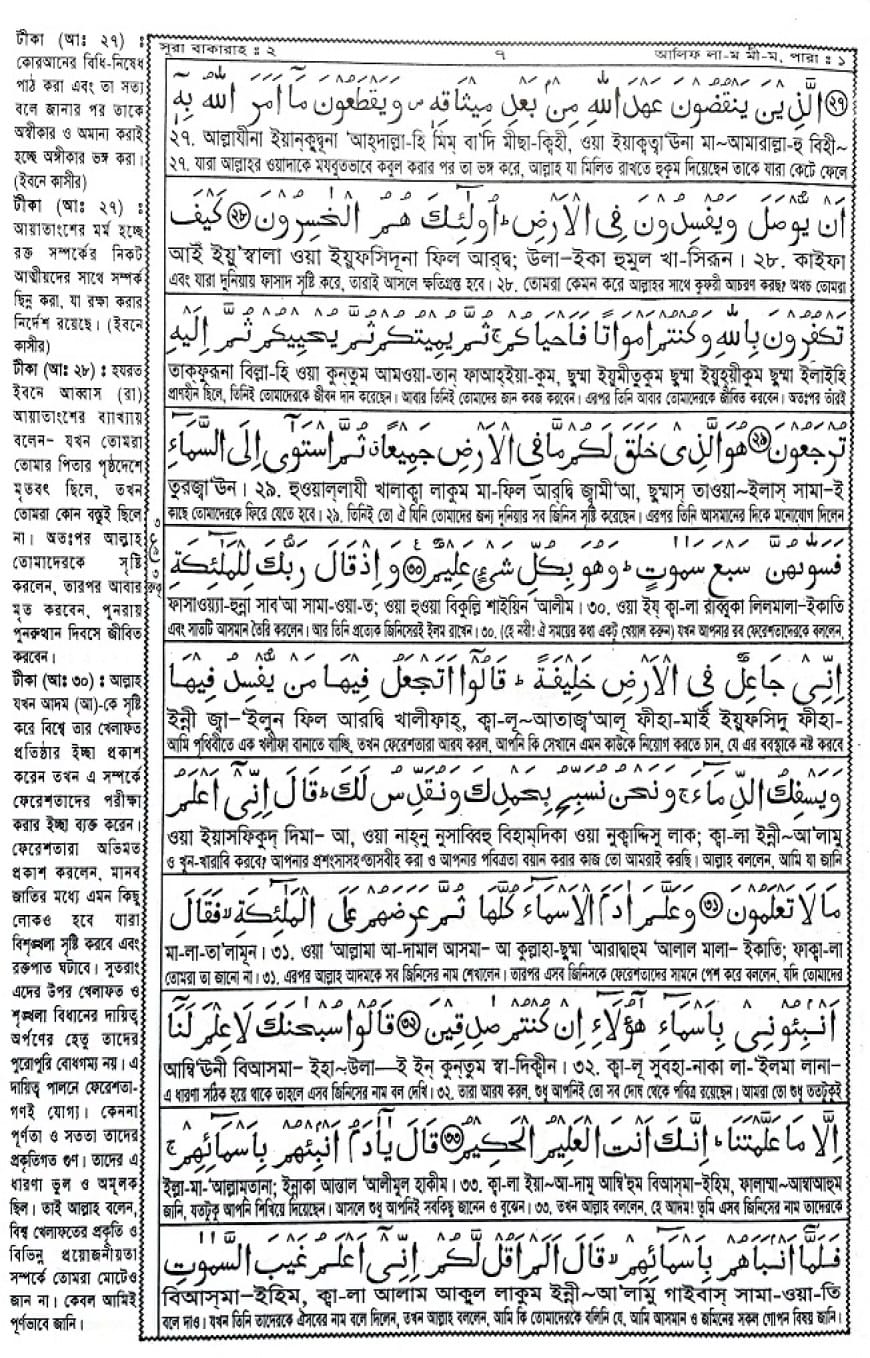 সূরা বাকারাহ : ২
৭
আলিফ লা-ম মী-ম, পারা : ১
টীকা (আঃ ২৭) :
কোরআনের বিধি-নিষেধ
পাঠ করা এবং তা সত্য
বলে জানার পর তাকে
অস্বীকার ও অমান্য করাই
হচ্ছে অঙ্গীকার ভঙ্গ করা।
(ইবনে কাসীর)
টীকা (আঃ ২৭) :
আয়াতাংশের মর্ম হচ্ছে
রক্ত সম্পর্কের নিকট
আত্মীয়দের সাথে সম্পর্ক
ছিন্ন করা, যা রক্ষা করার
নির্দেশ রয়েছে। (ইবনে
কাসীর)
টীকা (আঃ ২৮) : হযরত
ইবনে আব্বাস (রা)
আয়াতাংশের ব্যাখ্যায়
বলেন– যখন তোমরা
তোমার পিতার পৃষ্ঠদেশে
মৃতবৎ ছিলে, তখন
তোমরা কোন বস্তুই ছিলে
না। অতঃপর আল্লাহ
তোমাদেরকে সৃষ্টি
করলেন, তারপর আবার
মৃত করবেন, পুনরায়
পুনরুত্থান দিবসে জীবিত
করবেন।
টীকা (আঃ ৩০) : আল্লাহ
যখন আদম (আ)-কে সৃষ্টি
করে বিশ্বে তার খেলাফত
প্রতিষ্ঠার ইচ্ছা প্রকাশ
করেন তখন এ সম্পর্কে
ফেরেশতাদের পরীক্ষা
করার ইচ্ছা ব্যক্ত করেন।
ফেরেশতারা অভিমত
প্রকাশ করলেন, মানব
জাতির মধ্যে এমন কিছু
লোকও হবে যারা
বিশৃঙ্খলা সৃষ্টি করবে এবং
রক্তপাত ঘটাবে। সুতরাং
এদের উপর খেলাফত ও
শৃঙ্খলা বিধানের দায়িত্ব
অর্পণের হেতু তাদের
পুরোপুরি বোধগম্য নয়। এ
দায়িত্ব পালনে ফেরেশতা-
গণই যোগ্য। কেননা
পূর্ণতা ও সততা তাদের
প্রকৃতিগত গুণ। তাদের এ
ধারণা ভুল ও অমূলক
ছিল। তাই আল্লাহ বলেন,
বিশ্ব খেলাফতের প্রকৃতি ও
বিভিন্ন প্রয়োজনীয়তা
সম্পর্কে তোমরা মোটেও
জান না। কেবল আমিই
পূর্ণভাবে জানি।
﴿٢٧﴾ الَّذِيْنَ يَنْقُضُوْنَ عَهْدَ اللّٰهِ مِنْۢ بَعْدِ مِيْثَاقِهٖ ۪ وَيَقْطَعُوْنَ مَآ اَمَرَ اللّٰهُ بِهٖٓ
২৭. আল্লাযীনা ইয়ানক্বুদ্বূনা 'আহ্দাল্লা-হি মিম্ বা'দি মীছা-ক্বিহী, ওয়া ইয়াক্বত্বা'ঊনা মা~আমারাল্লা-হু বিহী~
২৭. যারা আল্লাহর ওয়াদাকে মযবুতভাবে কবুল করার পর তা ভঙ্গ করে, আল্লাহ যা মিলিত রাখতে হুকুম দিয়েছেন তাকে যারা কেটে ফেলে
اَنْ يُّوْصَلَ وَيُفْسِدُوْنَ فِى الْاَرْضِ ؕ اُولٰٓئِكَ هُمُ الْخٰسِرُوْنَ ﴿٢٨﴾ كَيْفَ
আইঁ ইয়ূস্বালা ওয়া ইয়ুফসিদূনা ফিল আরদ্বি; উলা-ইকা হুমুল খা-সিরূন। ২৮. কাইফা
এবং যারা দুনিয়ায় ফাসাদ সৃষ্টি করে, তারাই আসলে ক্ষতিগ্রস্ত হবে। ২৮. তোমরা কেমন করে আল্লাহর সাথে কুফরী আচরণ করছ? অথচ তোমরা
تَكْفُرُوْنَ بِاللّٰهِ وَكُنْتُمْ اَمْوَاتًا فَاَحْيَاكُمْ ۚ ثُمَّ يُمِيْتُكُمْ ثُمَّ يُحْيِيْكُمْ ثُمَّ اِلَيْهِ
তাকফুরূনা বিল্লা-হি ওয়া কুন্তুম আমওয়া-তান্ ফাআহ্ইয়া-কুম, ছুম্মা ইয়ুমীতুকুম ছুম্মা ইয়ুহ্য়ীকুম ছুম্মা ইলাইহি
প্রাণহীন ছিলে, তিনিই তোমাদেরকে জীবন দান করেছেন। আবার তিনিই তোমাদের জান কবজ করবেন। এরপর তিনি আবার তোমাদেরকে জীবিত করবেন। অতঃপর তাঁরই
تُرْجَعُوْنَ ﴿٢٩﴾ هُوَ الَّذِىْ خَلَقَ لَكُمْ مَّا فِى الْاَرْضِ جَمِيْعًا ثُمَّ اسْتَوٰٓى اِلَى السَّمَآءِ
তুরজ্বা'ঊন। ২৯. হুওয়াল্লাযী খালাক্বা লাকুম মা-ফিল আরদ্বি জ্বামী'আ, ছুম্মাস্ তাওয়া~ইলাস্ সামা-ই
কাছে তোমাদেরকে ফিরে যেতে হবে। ২৯. তিনিই তো ঐ যিনি তোমাদের জন্য দুনিয়ার সব জিনিস সৃষ্টি করেছেন। এরপর তিনি আসমানের দিকে মনোযোগ দিলেন
فَسَوّٰىهُنَّ سَبْعَ سَمٰوٰتٍ ؕ وَهُوَ بِكُلِّ شَىْءٍ عَلِيْمٌ ﴿٣٠﴾ وَاِذْ قَالَ رَبُّكَ لِلْمَلٰٓئِكَةِ
ফাসাওয়্যা-হুন্না সাব'আ সামা-ওয়া-ত; ওয়া হুওয়া বিকুল্লি শাইয়িন 'আলীম। ৩০. ওয়া ইয্ ক্বা-লা রাব্বুকা লিলমালা-ইকাতি
এবং সাতটি আসমান তৈরি করলেন। আর তিনি প্রত্যেক জিনিসেরই ইলম রাখেন। ৩০. (হে নবী! ঐ সময়ের কথা একটু খেয়াল করুন) যখন আপনার রব ফেরেশতাদেরকে বললেন,
اِنِّىْ جَاعِلٌ فِى الْاَرْضِ خَلِيْفَةً ؕ قَالُوْٓا اَتَجْعَلُ فِيْهَا مَنْ يُّفْسِدُ فِيْهَا
ইন্নী জ্বা-'ইলুন ফিল আরদ্বি খালীফাহ্, ক্বা-লূ~আতাজ্'আলূ ফীহা-মাইঁ ইয়ুফসিদু ফীহা-
আমি পৃথিবীতে এক খলীফা বানাতে যাচ্ছি, তখন ফেরেশতারা আরয করল, আপনি কি সেখানে এমন কাউকে নিয়োগ করতে চান, যে এর ব্যবস্থাকে নষ্ট করবে
وَيَسْفِكُ الدِّمَآءَ ۚ وَنَحْنُ نُسَبِّحُ بِحَمْدِكَ وَنُقَدِّسُ لَكَ ؕ قَالَ اِنِّىْٓ اَعْلَمُ
ওয়া ইয়াসফিকুদ্ দিমা- আ, ওয়া নাহ্নু নুসাব্বিহু বিহাম্দিকা ওয়া নুক্বাদ্দিসু লাক; ক্বা-লা ইন্নী~আ'লামু
ও খুন-খারাবি করবে? আপনার প্রশংসাসহ তাসবীহ করা ও আপনার পবিত্রতা বয়ান করার কাজ তো আমরাই করছি। আল্লাহ বললেন, আমি যা জানি
مَا لَا تَعْلَمُوْنَ ﴿٣١﴾ وَعَلَّمَ اٰدَمَ الْاَسْمَآءَ كُلَّهَا ثُمَّ عَرَضَهُمْ عَلَى الْمَلٰٓئِكَةِ ۙ فَقَالَ
মা-লা-তা'লামূন। ৩১. ওয়া 'আল্লামা আ-দামাল আসমা- আ কুল্লাহা-ছুম্মা 'আরাদ্বাহুম 'আলাল মালা- ইকাতি; ফাক্বা-লা
তোমরা তা জানো না। ৩১. এরপর আল্লাহ আদমকে সব জিনিসের নাম শেখালেন। তারপর এসব জিনিসকে ফেরেশতাদের সামনে পেশ করে বললেন, যদি তোমাদের
اَنْۢبِئُوْنِىْ بِاَسْمَآءِ هٰٓؤُلَآءِ اِنْ كُنْتُمْ صٰدِقِيْنَ ﴿٣٢﴾ قَالُوْا سُبْحٰنَكَ لَا عِلْمَ لَنَآ
আম্বি'ঊনী বিআসমা- ইহা~উলা—ই ইন্ কুন্তুম স্বা-দিক্বীন। ৩২. ক্বা-লূ সুবহা-নাকা লা-'ইলমা লানা-
এ ধারণা সঠিক হয়ে থাকে তাহলে এসব জিনিসের নাম বল দেখি। ৩২. তারা আরয করল, শুধু আপনিই তো সব দোষ থেকে পবিত্র রয়েছেন। আমরা তো শুধু ততটুকুই
اِلَّا مَا عَلَّمْتَنَا ؕ اِنَّكَ اَنْتَ الْعَلِيْمُ الْحَكِيْمُ ﴿٣٣﴾ قَالَ يٰٓاٰدَمُ اَنْۢبِئْهُمْ بِاَسْمَآئِهِمْ ۚ
ইল্লা-মা-'আল্লামতানা; ইন্নাকা আন্তাল 'আলীমুল হাকীম। ৩৩. ক্বা-লা ইয়া~আ-দামু আম্বি'হুম বিআসমা-ইহিম, ফালাম্মা~আম্বাআহুম
জানি, যতটুকু আপনি শিখিয়ে দিয়েছেন। আসলে শুধু আপনিই সবকিছু জানেন ও বুঝেন। ৩৩. তখন আল্লাহ বললেন, হে আদম! তুমি এসব জিনিসের নাম তাদেরকে
فَلَمَّآ اَنْۢبَاَهُمْ بِاَسْمَآئِهِمْ ۙ قَالَ اَلَمْ اَقُلْ لَّكُمْ اِنِّىْٓ اَعْلَمُ غَيْبَ السَّمٰوٰتِ
বিআসমা-ইহিম, ক্বা-লা আলাম আকুল লাকুম ইন্নী~আ'লামু গাইবাস্ সামা-ওয়া-তি
বলে দাও। যখন তিনি তাদেরকে ঐসবের নাম বলে দিলেন, তখন আল্লাহ বললেন, আমি কি তোমাদেরকে বলিনি যে, আমি আসমান ও জমিনের সকল গোপন বিষয় জানি।